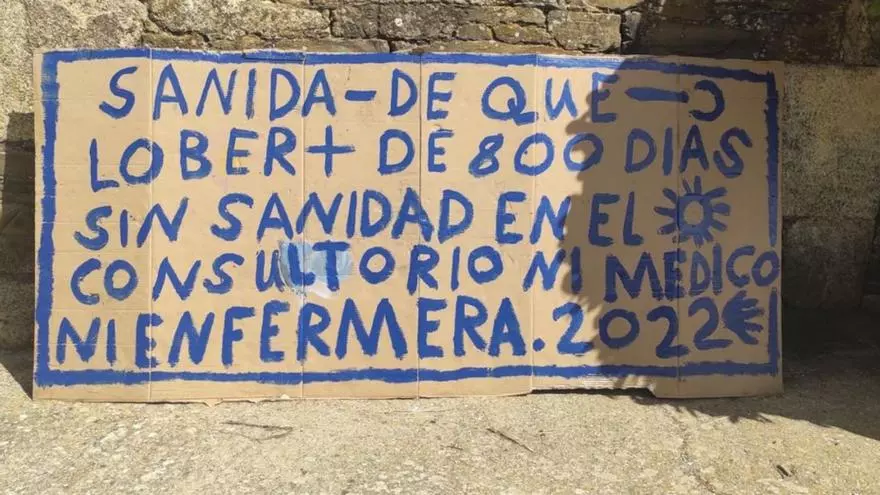 SANIDA-DE QUE-Ɔ
LOBER + DE 800 DIAS
SIN SANIDAD EN EL
CONSULTORIO NI MEDICO
NI ENFERMERA. 2022